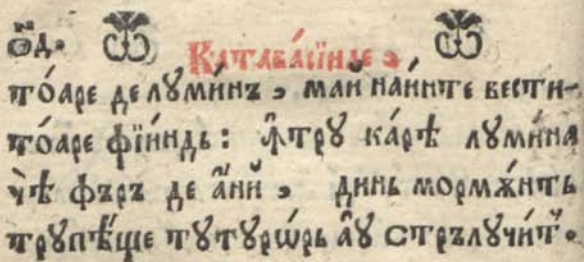 ѻ҃д. Катава́сїиле ,
тоа́ре де лꙋми́нъ , ма́й наи́нте вести-
тоа́ре фїи́ндь : ꙟ҆трꙋ ка́рѣ лꙋми́на
ч҆ѣ фъръ де а҆́нй , динь мормѫ́нть
трꙋпѣ́ще тꙋтꙋрѡ́рь а҆ꙋ стрълꙋчи́т.